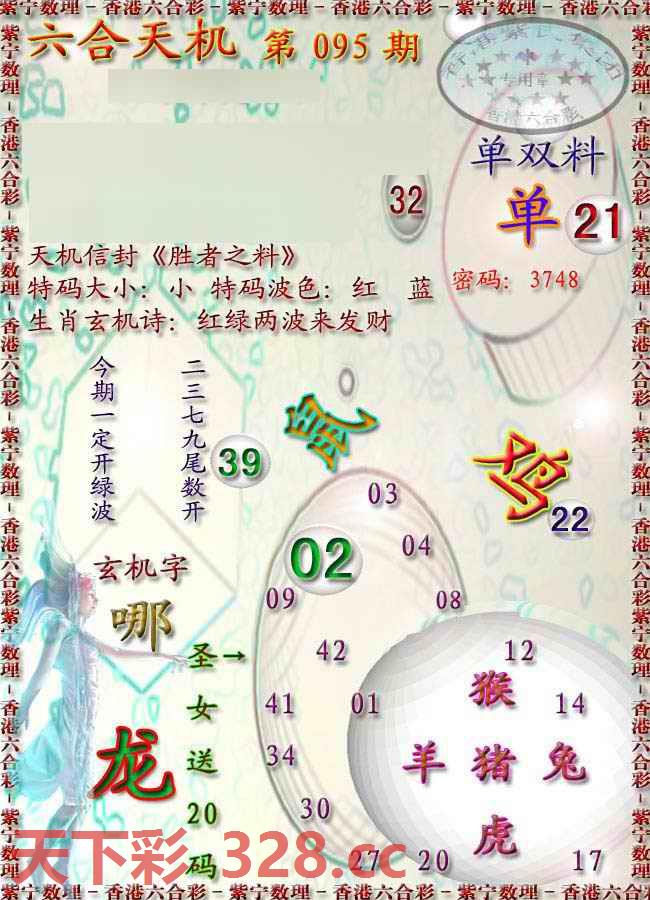 紫宁数理－香港六合彩－紫宁数理－香港六合彩－紫宁数理－香港六合彩
六合天机 第 095 期
专用章
香港六合彩
单双料
单 21
32
天机信封《胜者之料》
特码大小：小 特码波色：红 蓝
密码：3748
生肖玄机诗：红绿两波来发财
今期一定开绿波
二三七九尾数开
39
鼠
鸡
22
03
02
04
09
08
玄机字
哪
42
12
圣女送20码→
猴
41
01
14
龙
34
羊 猪 兔
30
虎
27
20
17
天下彩.328.cc
紫宁数理－香港六合彩－紫宁数理－香港六合彩－紫宁数理－香港六合彩